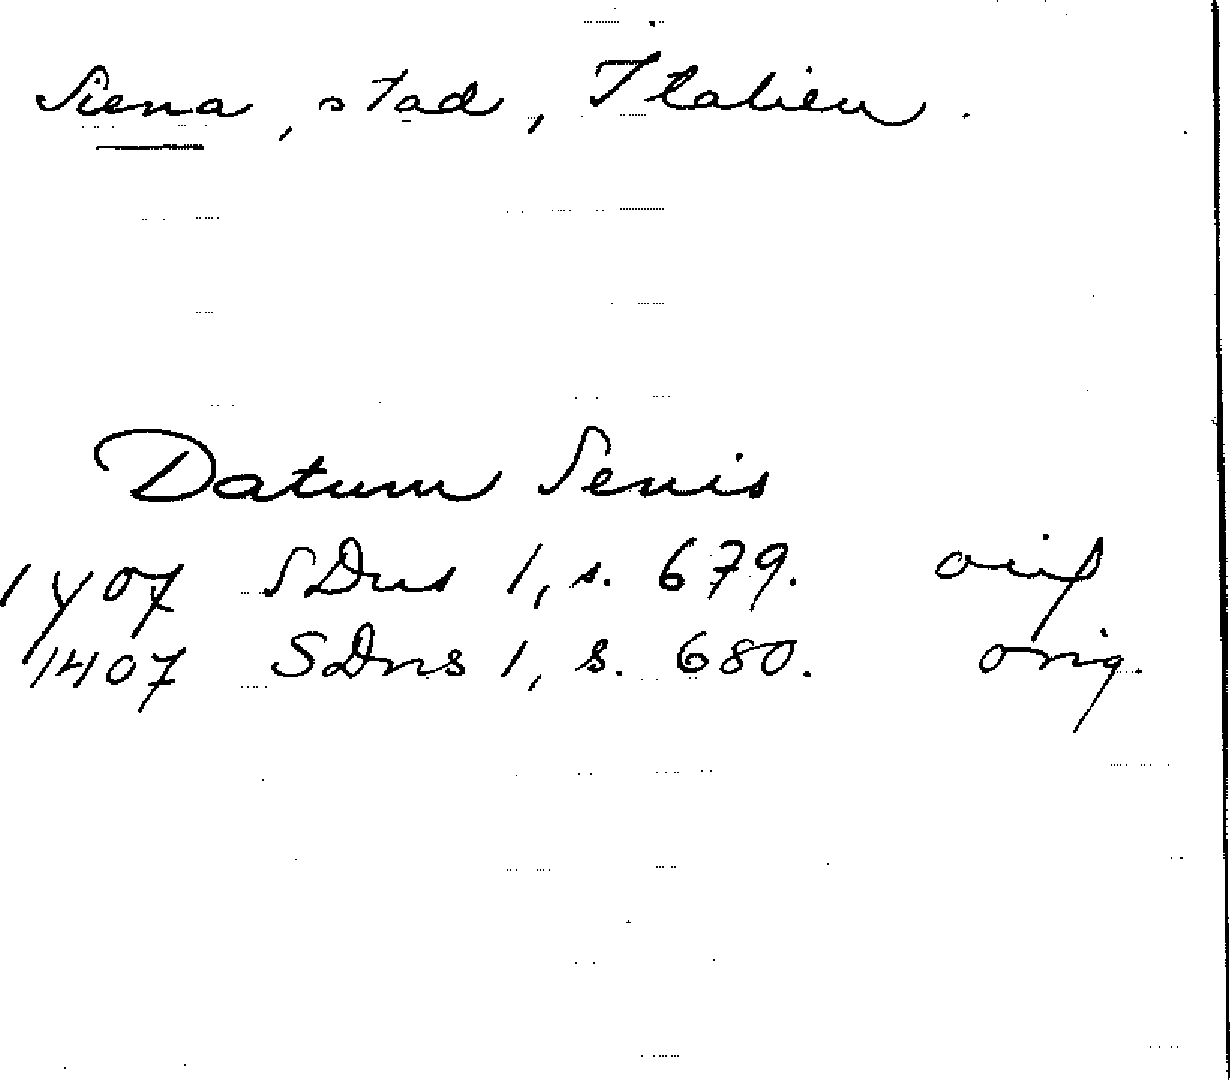 Siena, stad, Italien.
Datum Senis
1407 SDns 1, s. 679. orig
1407 SDns 1, s. 680. orig.